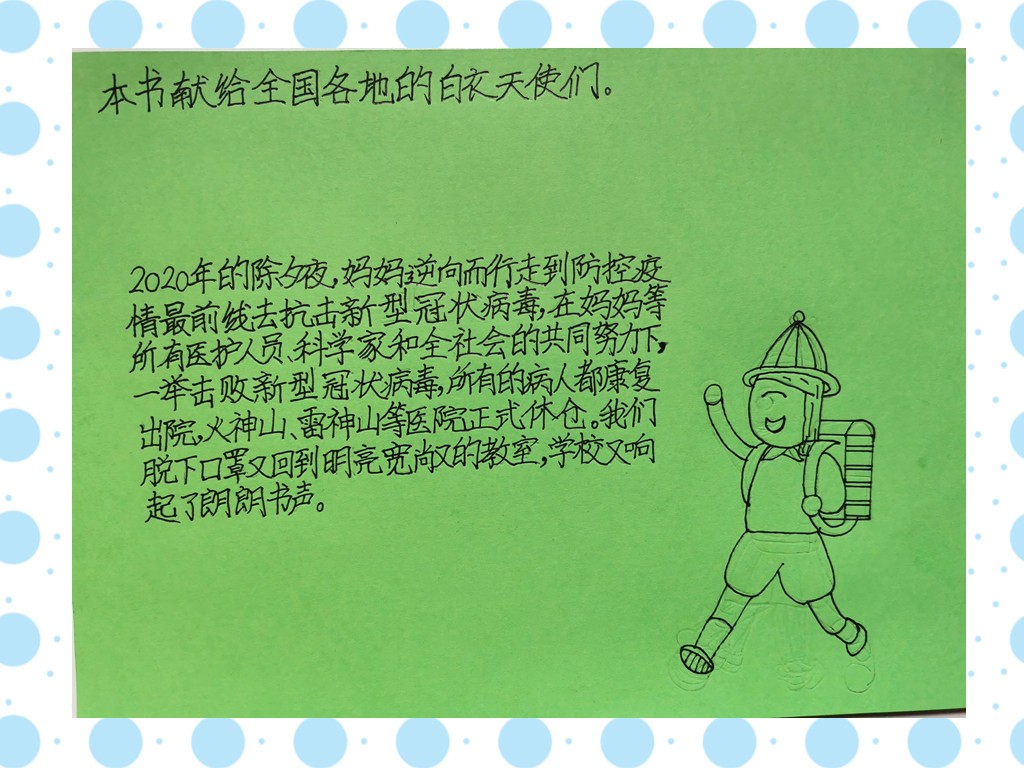 本书献给全国各地的白衣天使们。
2020年的除夕夜,妈妈逆向而行走到防控疫
情最前线去抗击新型冠状病毒,在妈妈等
所有医护人员、科学家和全社会的共同努力下,
一举击败新型冠状病毒,所有的病人都康复
出院,火神山、雷神山等医院正式休仓。我们
脱下口罩又回到明亮宽尚又的教室,学校又响
起了朗朗书声。